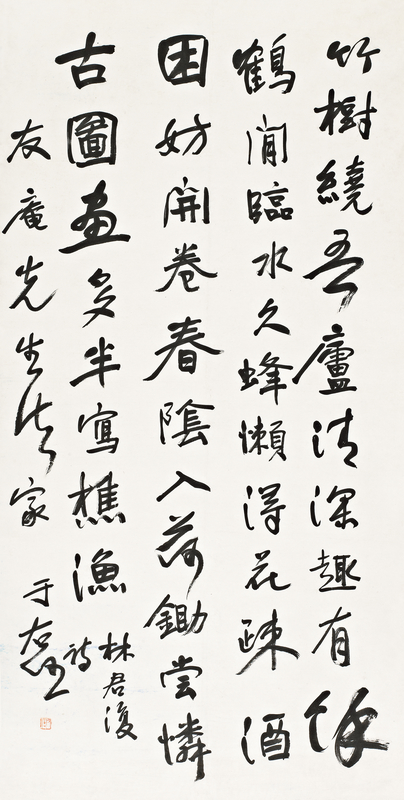 竹樹繞吾廬清深趣有餘
鶴閒臨水久蜂懶得花疎酒
困妨開卷春陰入荷鋤嘗憐
古圖畫多半寫樵漁
林君復
詩
友庵先生法家
于右任